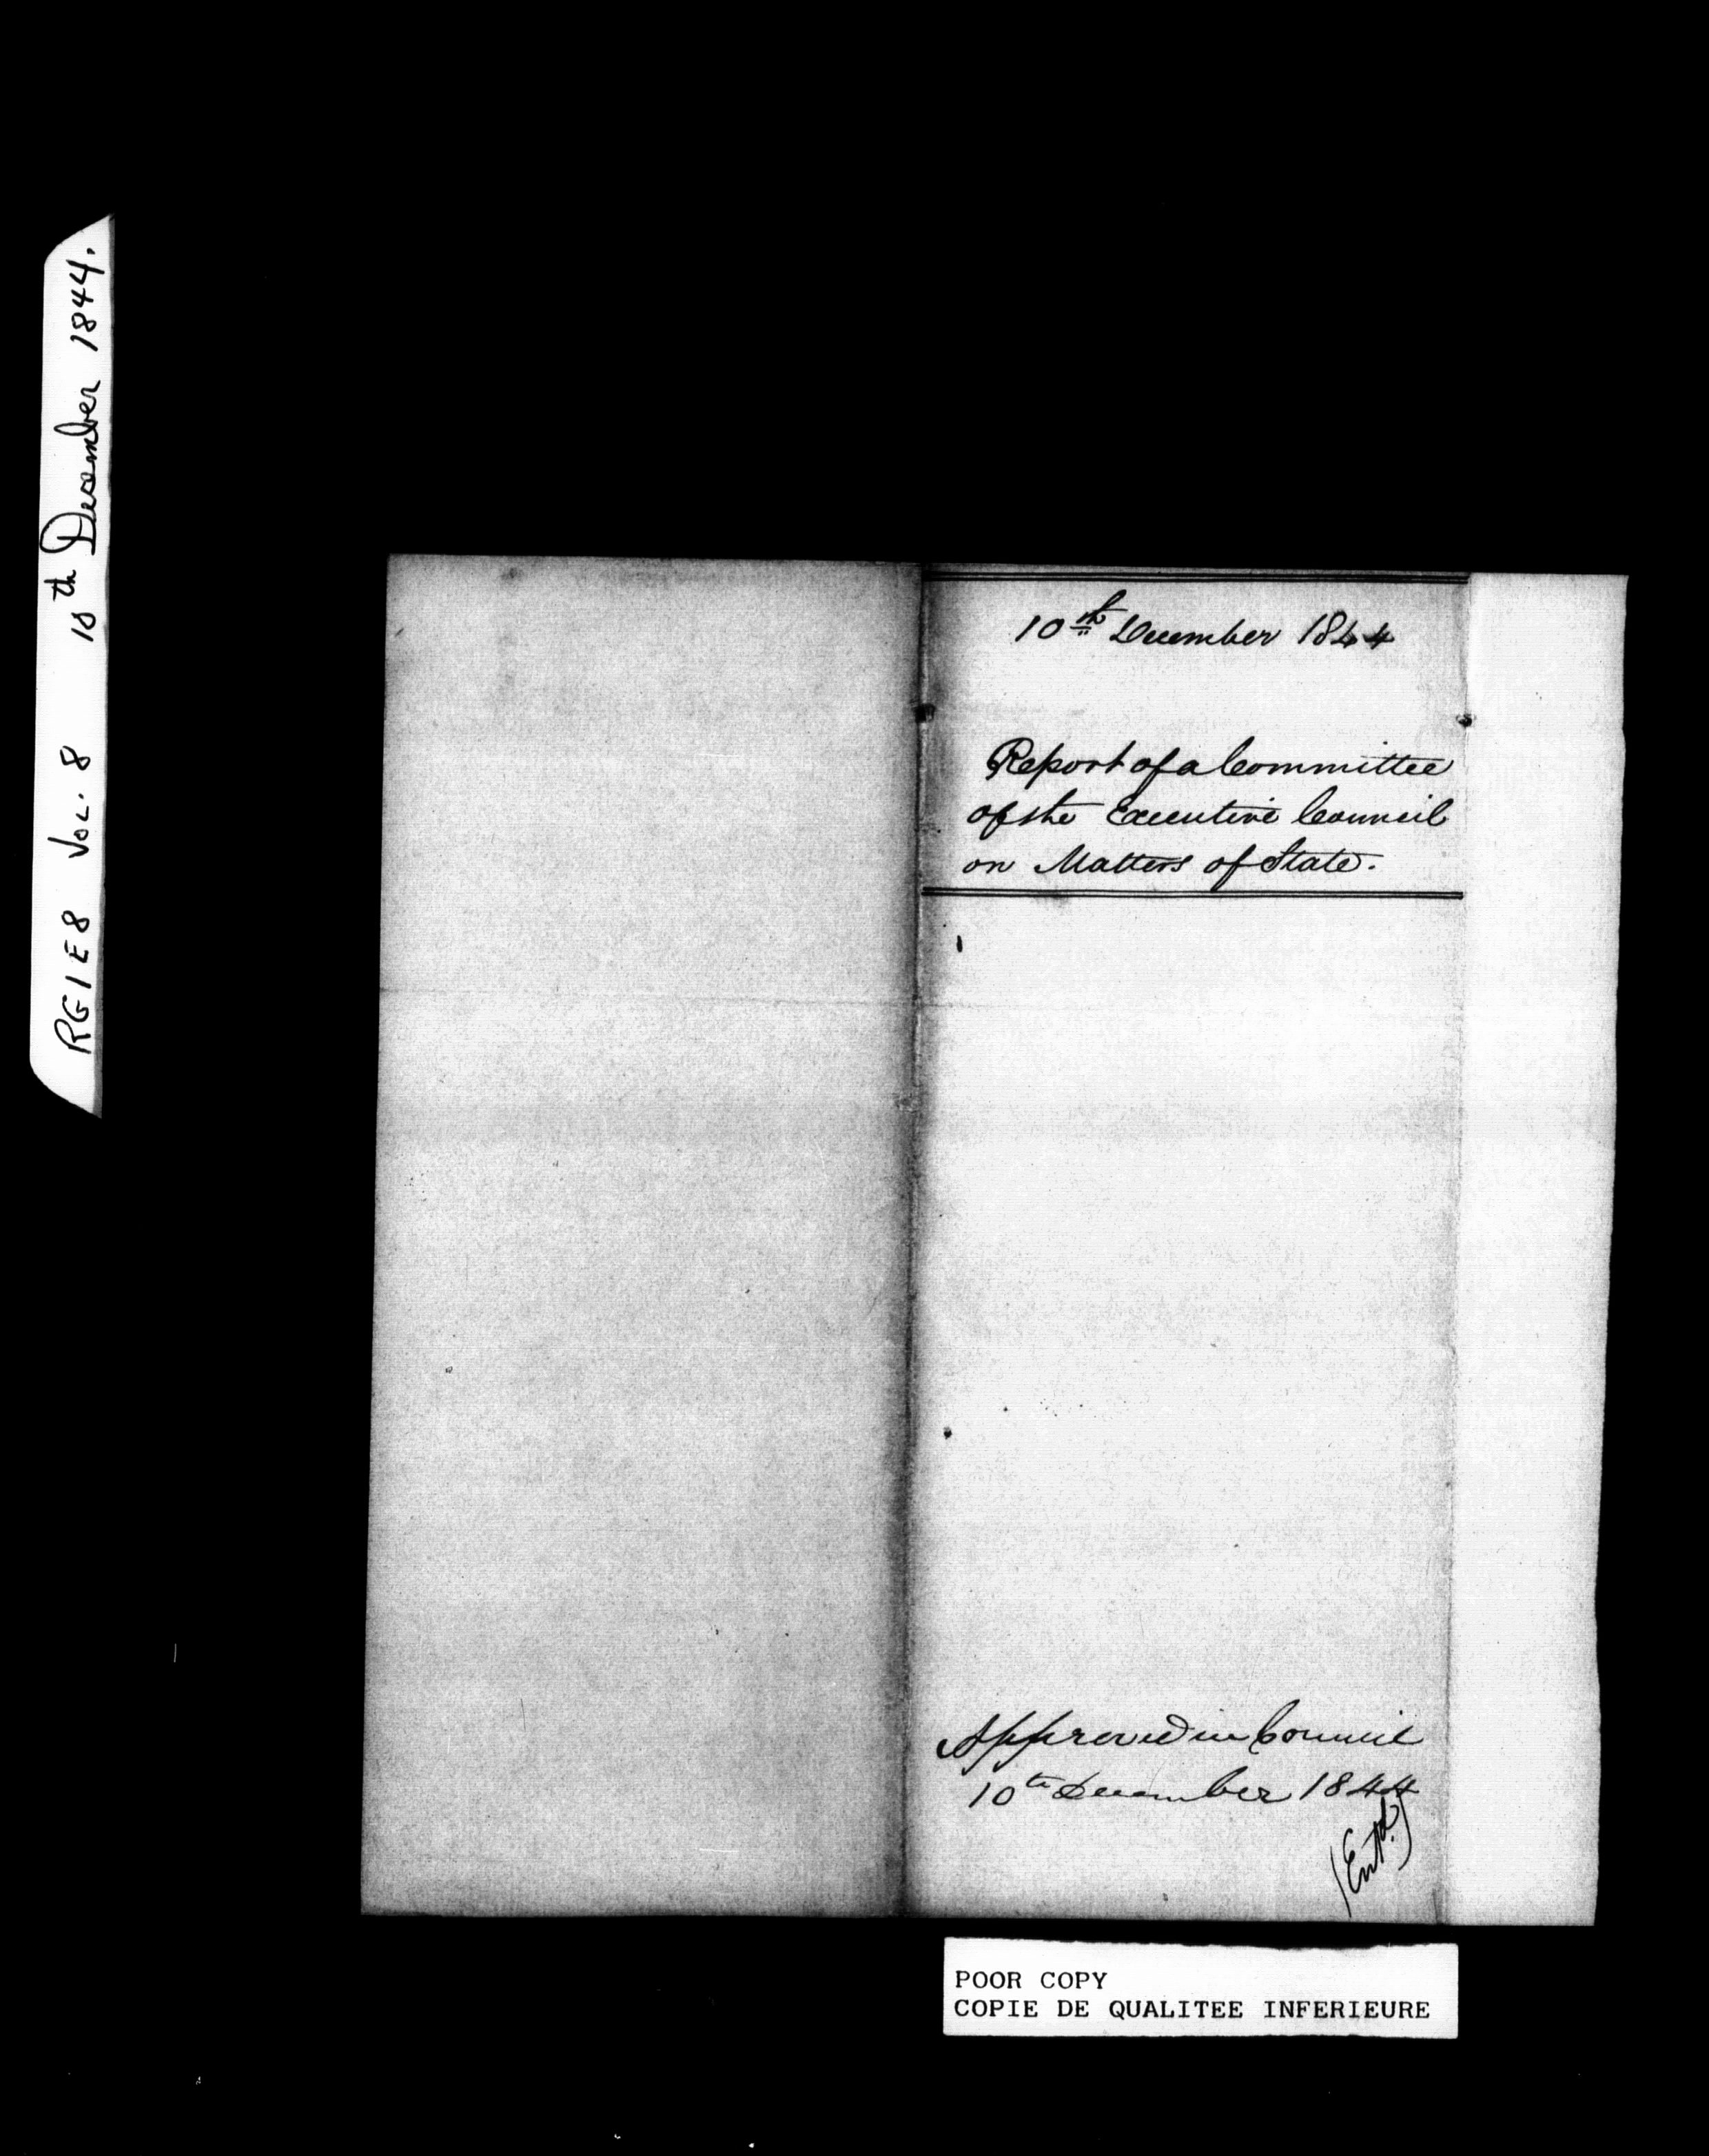 RG1E8 VOL. 8 10th December 1844.
10th December 1844
Report of a Committee
of the Executive Council
on Matters of State.
Approved in Council
10th December 1844
(Entd.)
POOR COPY
COPIE DE QUALITEE INFERIEURE